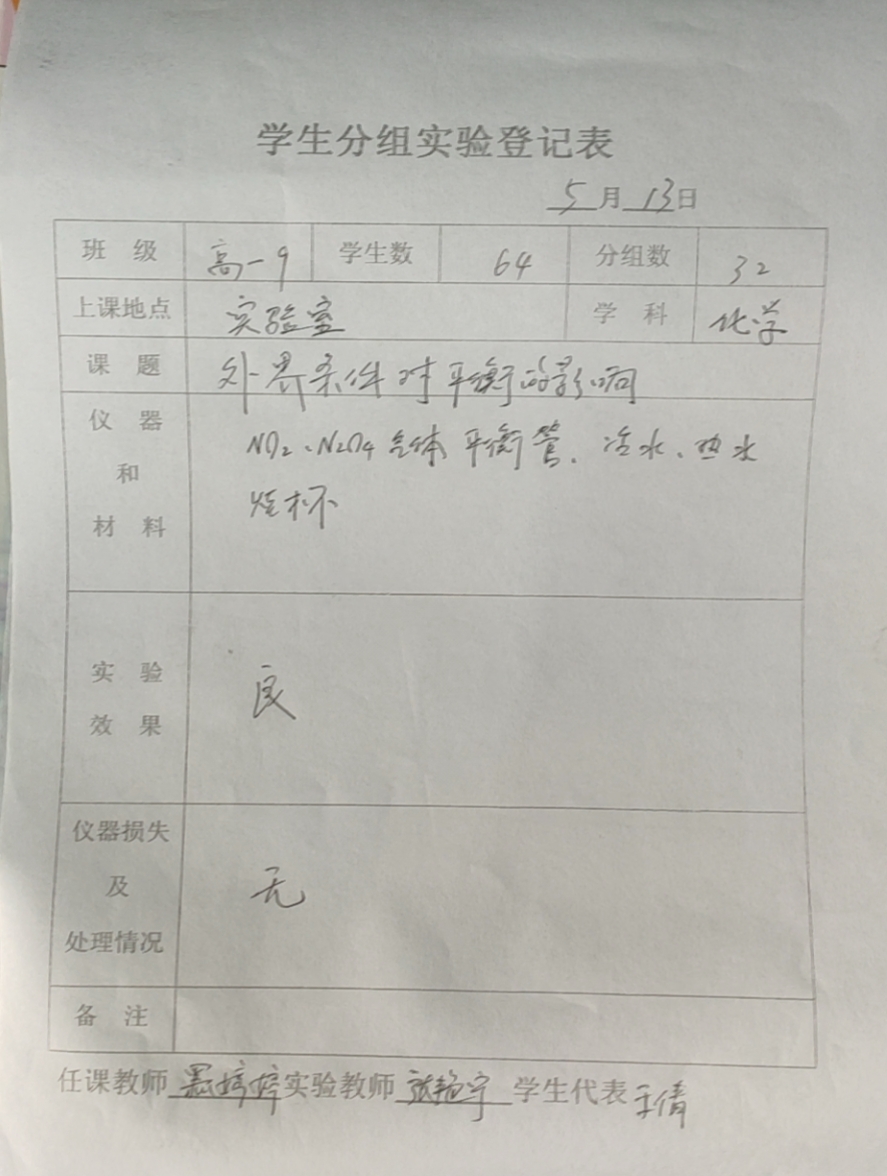 学生分组实验登记表
5月13日
班 级 高一9 学生数 64 分组数 32
上课地点 实验室 学 科 化学
课 题 外界条件对平衡的影响
仪 器 NO2、N2O4气体平衡管、冷水、热水
和 烧杯
材 料
实 验
效 果 良
仪器损失
及 无
处理情况
备 注
任课教师 婷婷 实验教师 张艳宁 学生代表 王倩